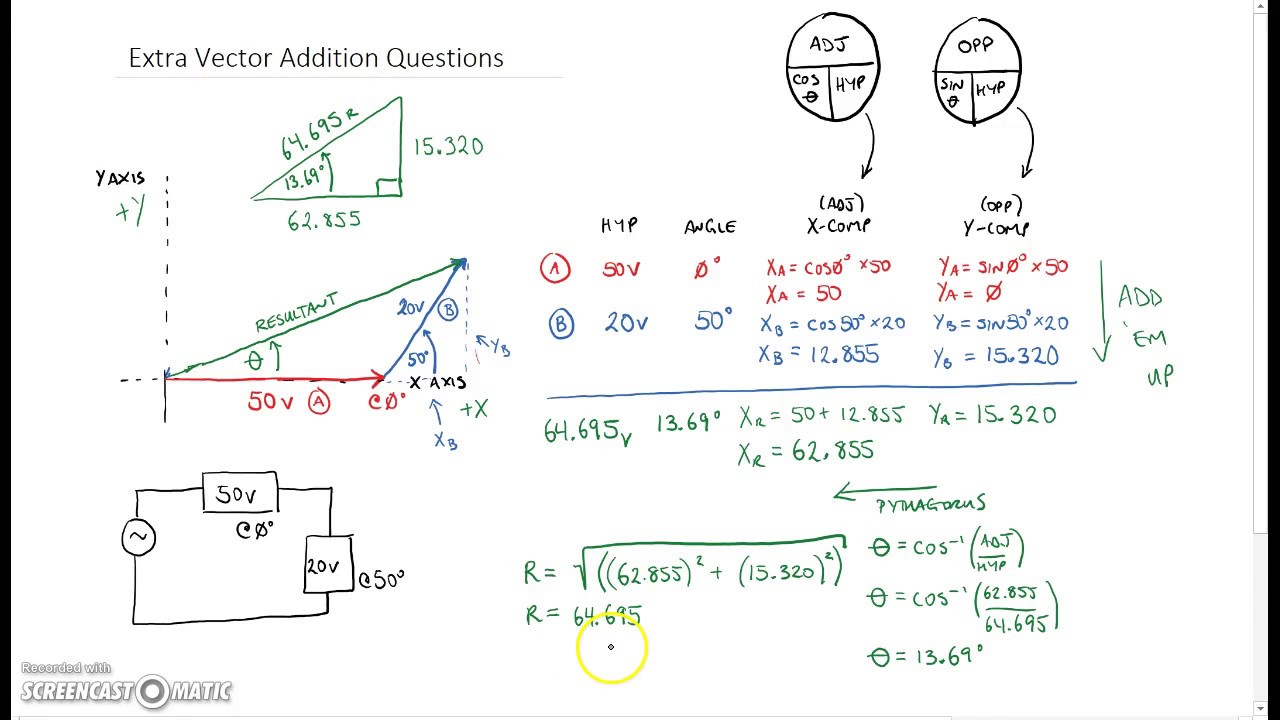 Extra Vector Addition Questions
ADJ
COS θ
HYP
OPP
SIN θ
HYP
64.695 R
13.69°
15.320
62.855
Y AXIS
+Y
RESULTANT
θ
20v B
50°
YB
X AXIS
50v A
@0°
+X
XB
HYP ANGLE (ADJ) X-COMP (OPP) Y-COMP
A 50v 0° XA = COS0° × 50 YA = SIN0° × 50
XA = 50 YA = 0
B 20v 50° XB = COS50° × 20 YB = SIN50° × 20
XB = 12.855 YB = 15.320
ADD
'EM
UP
64.695v 13.69° XR = 50 + 12.855 YR = 15.320
XR = 62.855
PYTHAGORUS
50v
@0°
~
20v
@50°
R = √((62.855)² + (15.320)²)
R = 64.695
θ = COS⁻¹ (ADJ/HYP)
θ = COS⁻¹ (62.855/64.695)
θ = 13.69°
Recorded with
SCREENCAST O MATIC